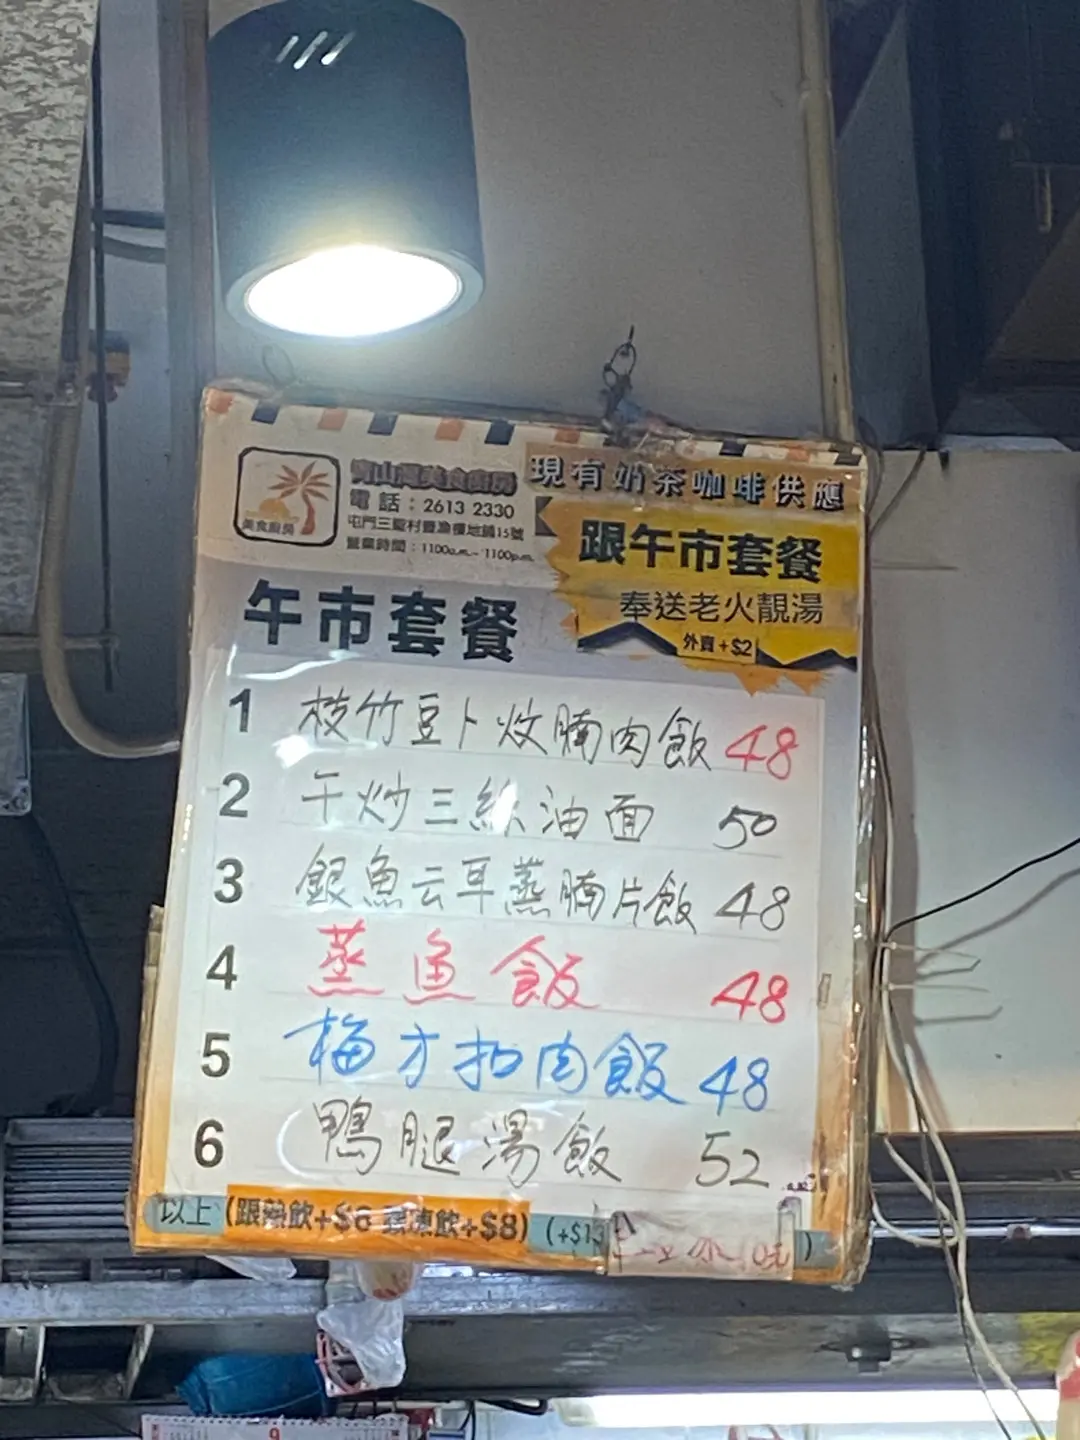 美食廚房
青山灣美食廚房
電話：2613 2330
屯門三聖村豐漁樓地鋪15號
營業時間：1100a.m.-1100p.m.
現有奶茶咖啡供應
跟午市套餐
奉送老火靚湯
外賣+$2
午市套餐
1 枝竹豆卜炆腩肉飯 48
2 干炒三絲油面 50
3 銀魚云耳蒸腩片飯 48
4 蒸鱼飯 48
5 梅才扣肉飯 48
6 鴨腿湯飯 52
以上 (跟熱飲+$6 跟凍飲+$8) (+$13 )
9